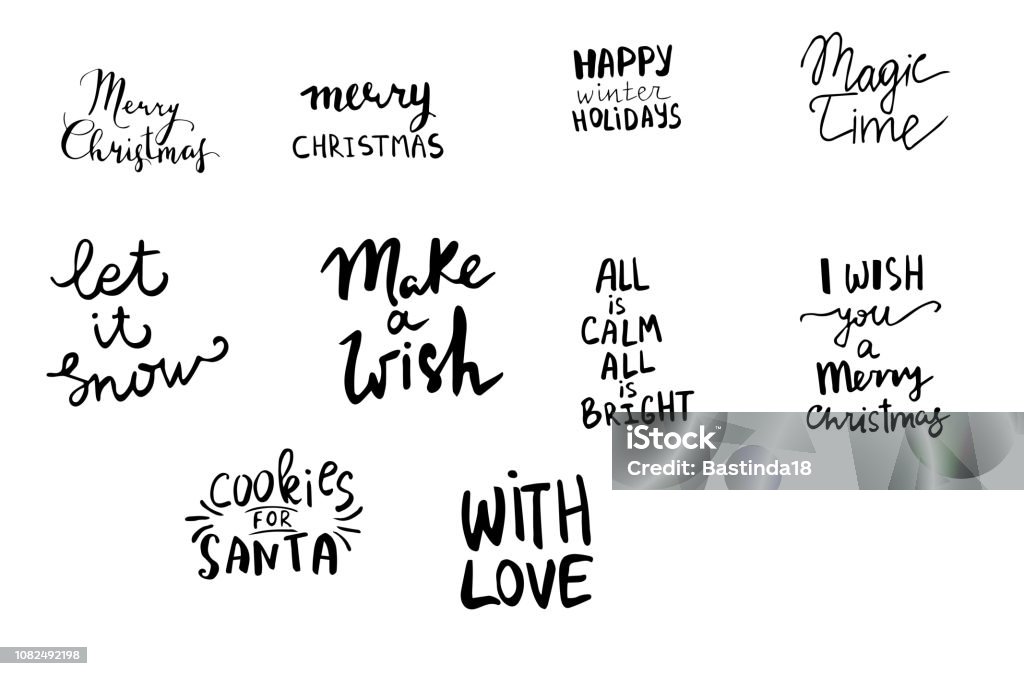 Merry
Christmas
merry
CHRISTMAS
HAPPY
winter
HOLiDAYS
Magic
Time
let
it
snow
Make
a
Wish
ALL
is
CALM
ALL
is
BRIGHT
I WISH
you
a
Merry
Christmas
COOKiES
FOR
SANTA
WiTH
LOVE
iStock™
Credit: Bastinda18
1082492198